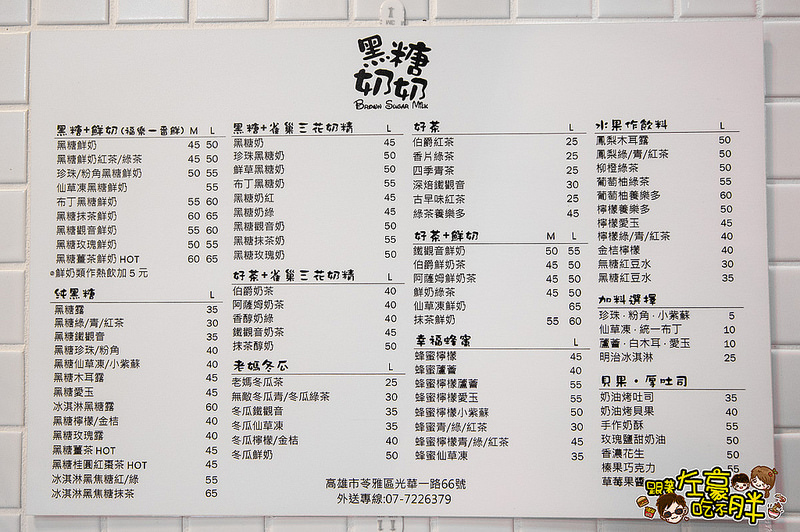 黑糖奶奶
BROWN SUGAR MILK
黑糖+鮮奶(福樂一番鮮) M L
黑糖鮮奶 45 50
黑糖鮮奶紅茶/綠茶 45 50
珍珠/粉角黑糖鮮奶 50 55
仙草凍黑糖鮮奶 55
布丁黑糖鮮奶 55 60
黑糖抹茶鮮奶 60 65
黑糖觀音鮮奶 55 60
黑糖玫瑰鮮奶 50 55
黑糖薑茶鮮奶 HOT 60 65
鮮奶類作熱飲加5元
純黑糖 L
黑糖露 35
黑糖綠/青/紅茶 30
黑糖鐵觀音 35
黑糖珍珠/粉角 40
黑糖仙草凍/小紫蘇 40
黑糖木耳露 45
黑糖愛玉 45
冰淇淋黑糖露 60
黑糖檸檬/金桔 40
黑糖玫瑰露 40
黑糖薑茶 HOT 45
黑糖桂圓紅棗茶 HOT 45
冰淇淋黑焦糖紅/綠 55
冰淇淋黑焦糖抹茶 65
黑糖+雀巢三花奶精 L
黑糖奶 45
珍珠黑糖奶 50
鮮草黑糖奶 50
布丁黑糖奶 55
黑糖奶紅 45
黑糖奶綠 45
黑糖觀音奶 50
黑糖抹茶奶 55
黑糖玫瑰奶 50
好茶+雀巢三花奶精 L
伯爵奶茶 40
阿薩姆奶茶 40
香醇奶綠 40
鐵觀音奶茶 45
抹茶醇奶 50
老媽冬瓜 L
老媽冬瓜茶 25
無敵冬瓜青/冬瓜綠茶 30
冬瓜鐵觀音 35
冬瓜仙草凍 35
冬瓜檸檬/金桔 40
冬瓜鮮奶 50
好茶 L
伯爵紅茶 25
香片綠茶 25
四季青茶 25
深焙鐵觀音 30
古早味紅茶 25
綠茶養樂多 45
好茶+鮮奶 M L
鐵觀音鮮奶 50 55
伯爵鮮奶茶 45 50
阿薩姆鮮奶茶 45 50
鮮奶綠茶 45 50
仙草凍鮮奶 65
抹茶鮮奶 55 60
幸福蜂蜜 L
蜂蜜檸檬 45
蜂蜜蘆薈 40
蜂蜜檸檬蘆薈 55
蜂蜜檸檬愛玉 55
蜂蜜檸檬小紫蘇 50
蜂蜜青/綠/紅茶 30
蜂蜜檸檬青/綠/紅茶 45
蜂蜜仙草凍 35
水果作飲料 L
鳳梨木耳露 50
鳳梨綠/青/紅茶 50
柳橙綠茶 50
葡萄柚綠茶 55
葡萄柚養樂多 60
檸檬養樂多 50
檸檬愛玉 45
檸檬綠/青/紅茶 40
金桔檸檬 40
無糖紅豆水 30
黑糖紅豆水 35
加料選擇
珍珠·粉角·小紫蘇 5
仙草凍·統一布丁 10
蘆薈·白木耳·愛玉 10
明治冰淇淋 25
貝果·厚吐司
奶油烤吐司 35
奶油烤貝果 40
手作奶酥 55
玫瑰鹽甜奶油 50
香濃花生 50
榛果巧克力 55
草莓果醬
高雄市苓雅區光華一路66號
外送專線:07-7226379
跟著左豪吃不胖